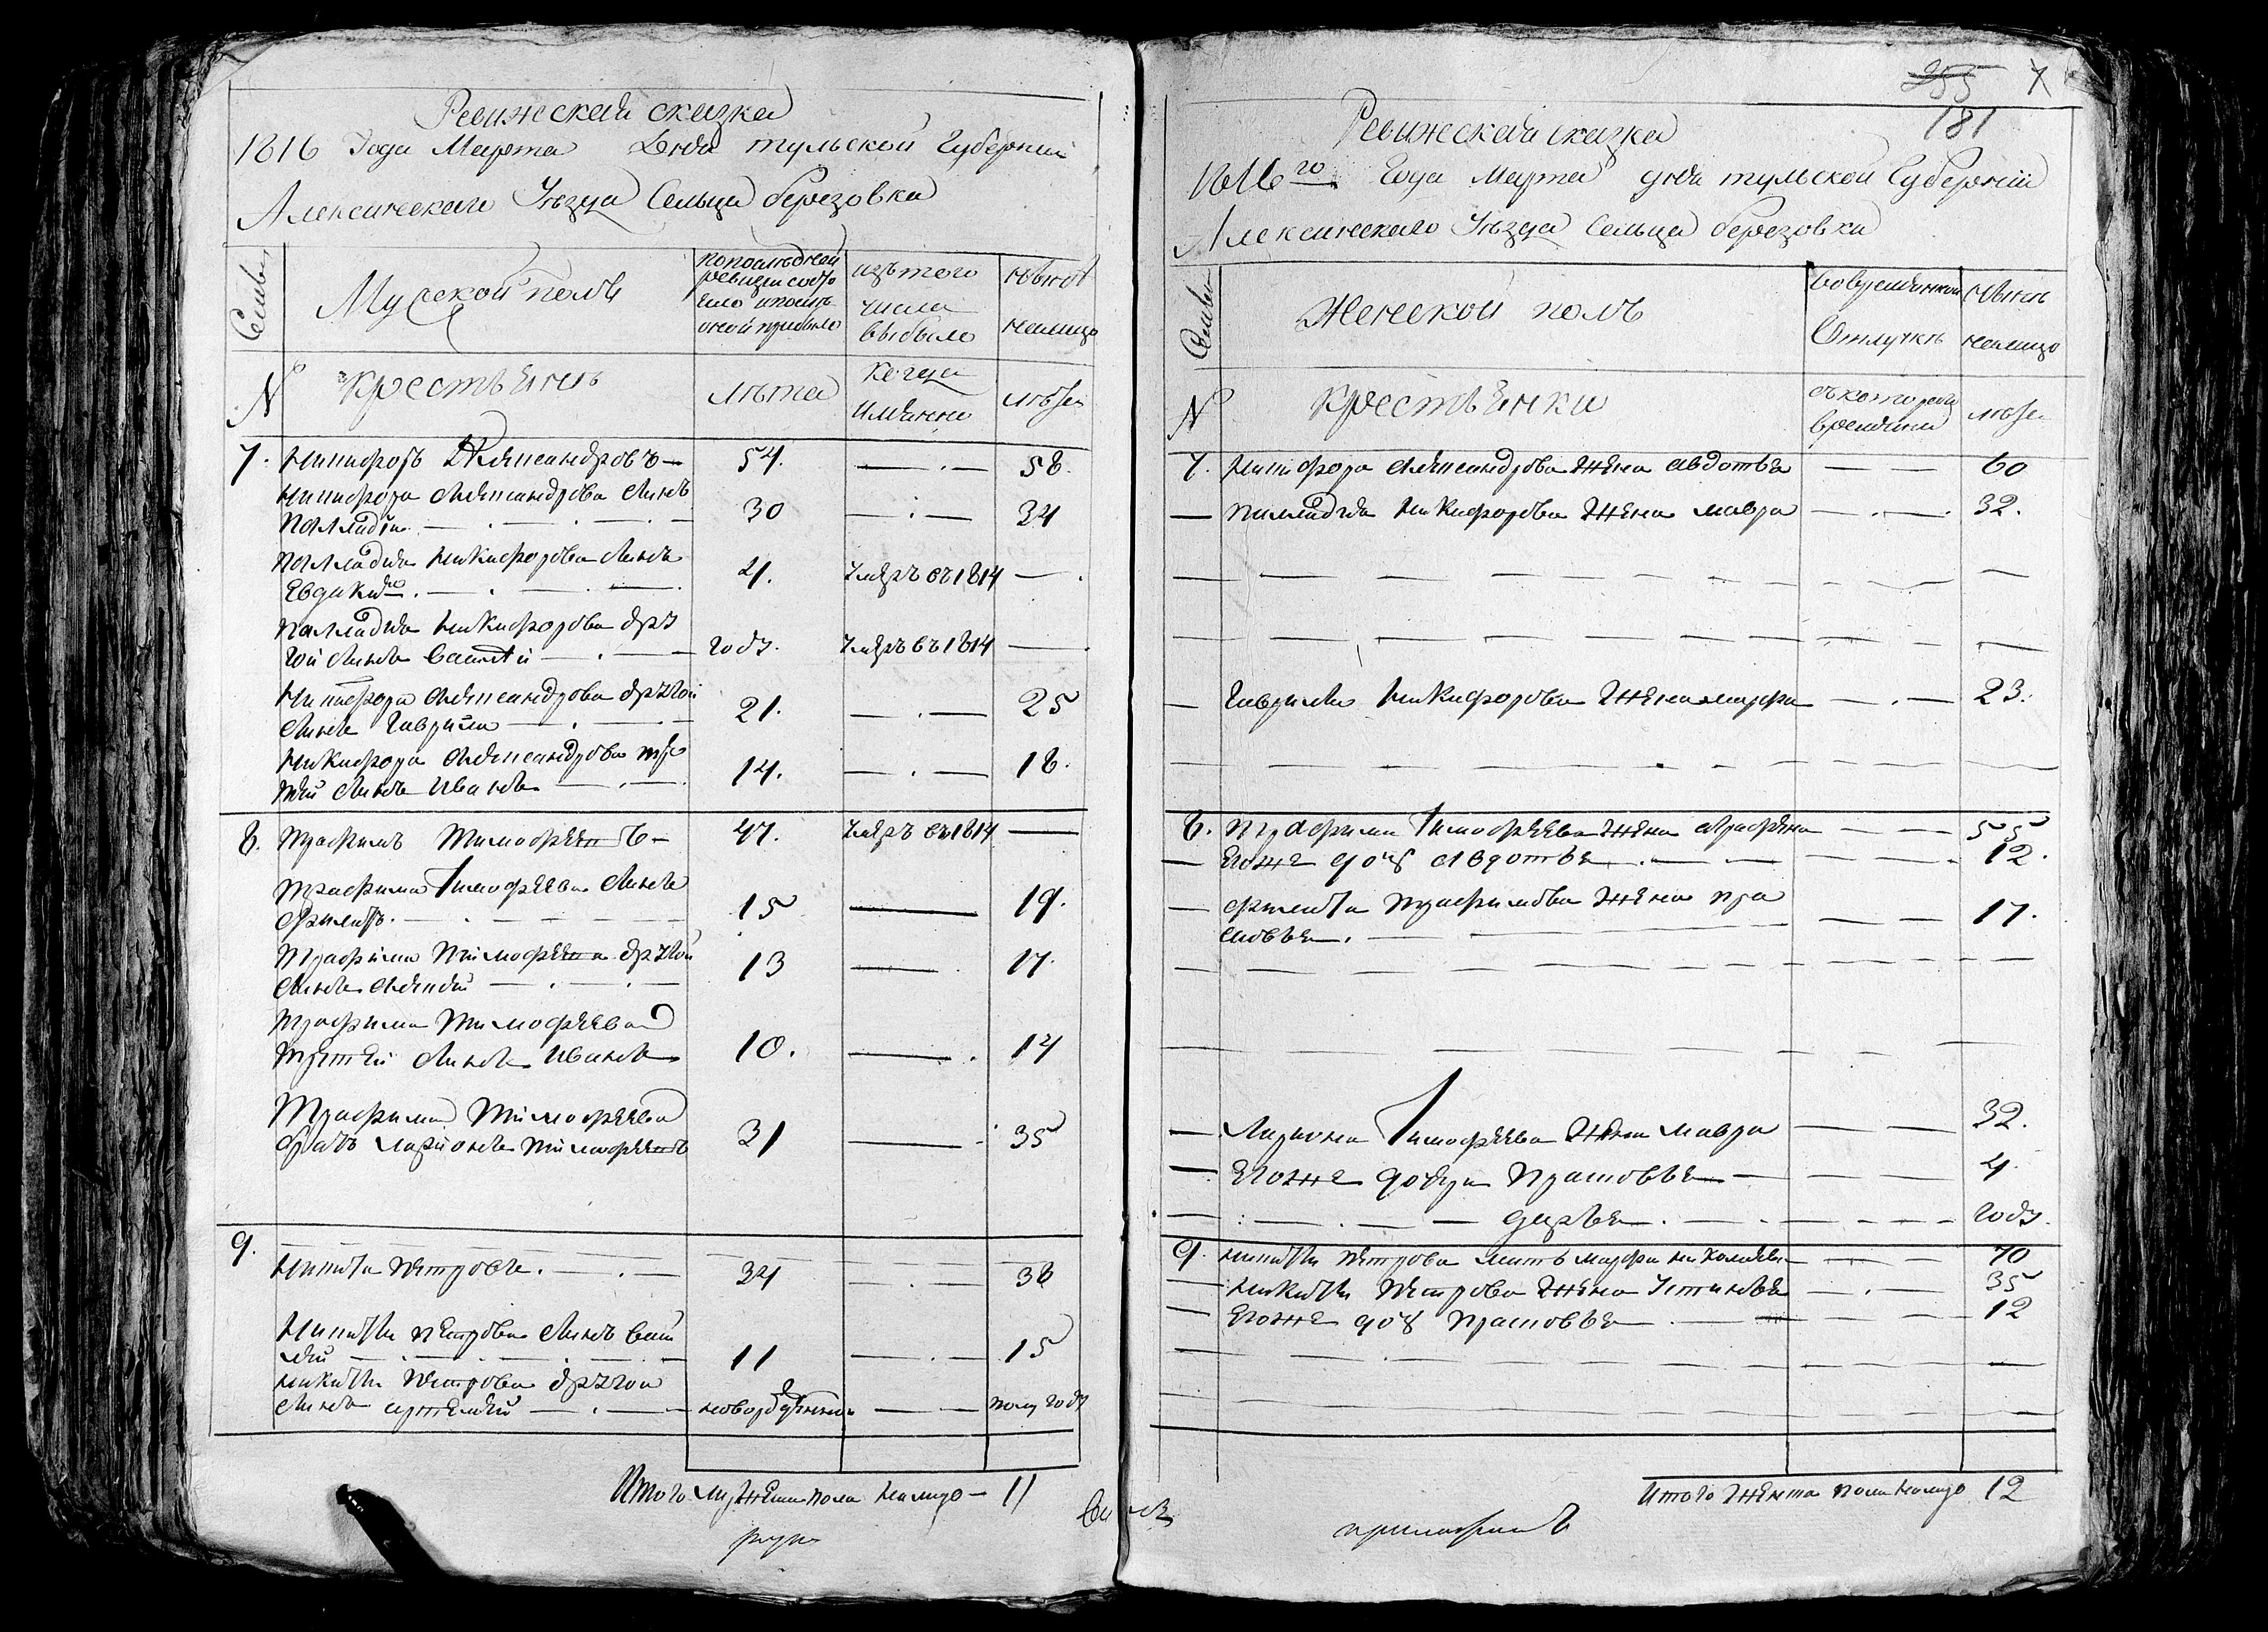 Ревижская сказка
1816 Года Марта Дня тульской Губернии
Алексинскаго Уезда Сельца березовки
Семьи
Мужской полъ
по последней
ревизии состо
яло и после
оной прибыло
изъ того
числа
выбыло
ныне
налицо
№
крестьяне
лета
когда
имянно
лета
7. Никифоръ Александровъ — 54. — 58.
Никифора Александрова сынъ
Палладiй 30 — 34
Палладия Никифорова сынъ
Евдоким 4. умръ въ 1814 —
Палладия Никифорова дру
гой сынъ Василiй году. умръ въ 1814 —
Никифора Александрова другой
сынъ Гаврила 21. — 25
Никифора Александрова тре
тий сынъ Иванъ 14. — 18.
8. Трафимъ Тимофеевъ — 47. умръ въ 1814 —
Трафима Тимофеева сынъ
Филатъ 15 — 19.
Трафима Тимофеева другой
сынъ Алексей 13 — 17.
Трафима Тимофеева
третей сынъ Иванъ 10. — 14
Трафима Тимофеева
братъ Ларионъ Тимофеевъ 31 — 35
9.
Никита Петровъ. 34 — 38
Никиты Петрова сынъ Васи
лей 11 — 15
Никиты Петрова другой
сынъ артемей — новорожденной — полугоду
Итого мужеска пола налицо — 11
255 7
181
Ревижская сказка
1816го Года Марта дня тульской Губернiи
Алексинскаго Уезда Сельца березовки
Семьи
Женской полъ
Во временной
Отлучке
ныне
налицо
№
крестьянки
съ котораго
времяни
лета
7. Никифора Александрова жена авдотья — 60
Палладия Никифорова жена мавра — 32.
Гаврилы Никифорова жена марфа — 23.
8. Трафима Тимофеева жена аграфена — 55
Егоже дочь авдотья — 12.
Филата Трафимова жена пра
сковья. — 17.
Лариона Тимофеева жена мавра — 32.
Егоже дочери Прасковья — 4.
дарья — году.
9. Никиты Петрова мать марфа николаева — 70
Никиты Петрова жена Устинья — 35
Егоже дочь Прасковья — 12
Итого женска пола налицо 12